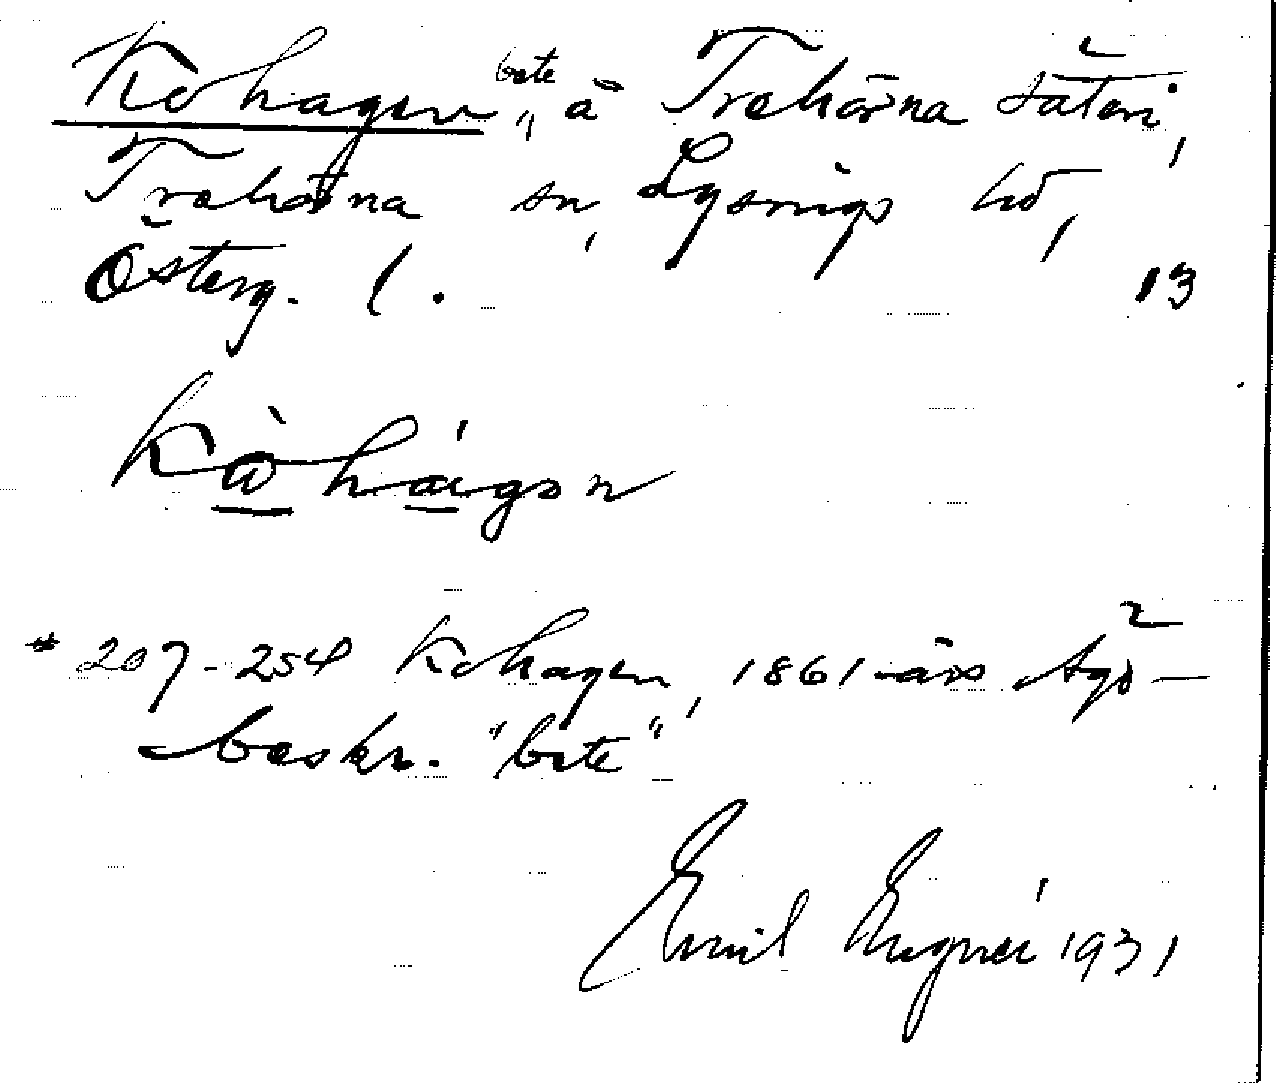 Kohagen, bete å Trehörna säteri,
Trehörna sn, Lysings hd,
Österg. l. 13
kὼhágən
* 207-254 Kohagen, 1861-års ägo-
beskr. "bete"
Emil Engnér 1931